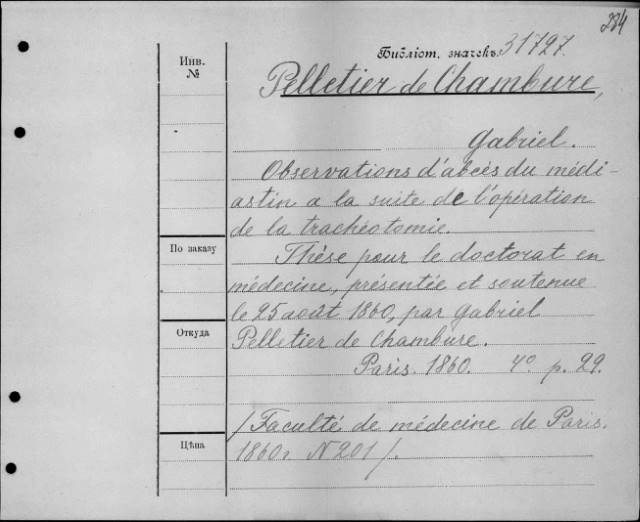 284
Библіот. значекъ 31797.
Инв.
№
Pelletier de Chambure,
Gabriel.
Observations d'abcès du médi-
astin a la suite de l'opération
de la tracheotomie.
По заказу
Thèse pour le doctorat en
médecine, présentée et soutenue
le 25 août 1860, par Gabriel
Откуда
Pelletier de Chambure.
Paris. 1860. 4º. p. 29.
/Faculté de médecine de Paris.
Цѣна
1860. N 201/.